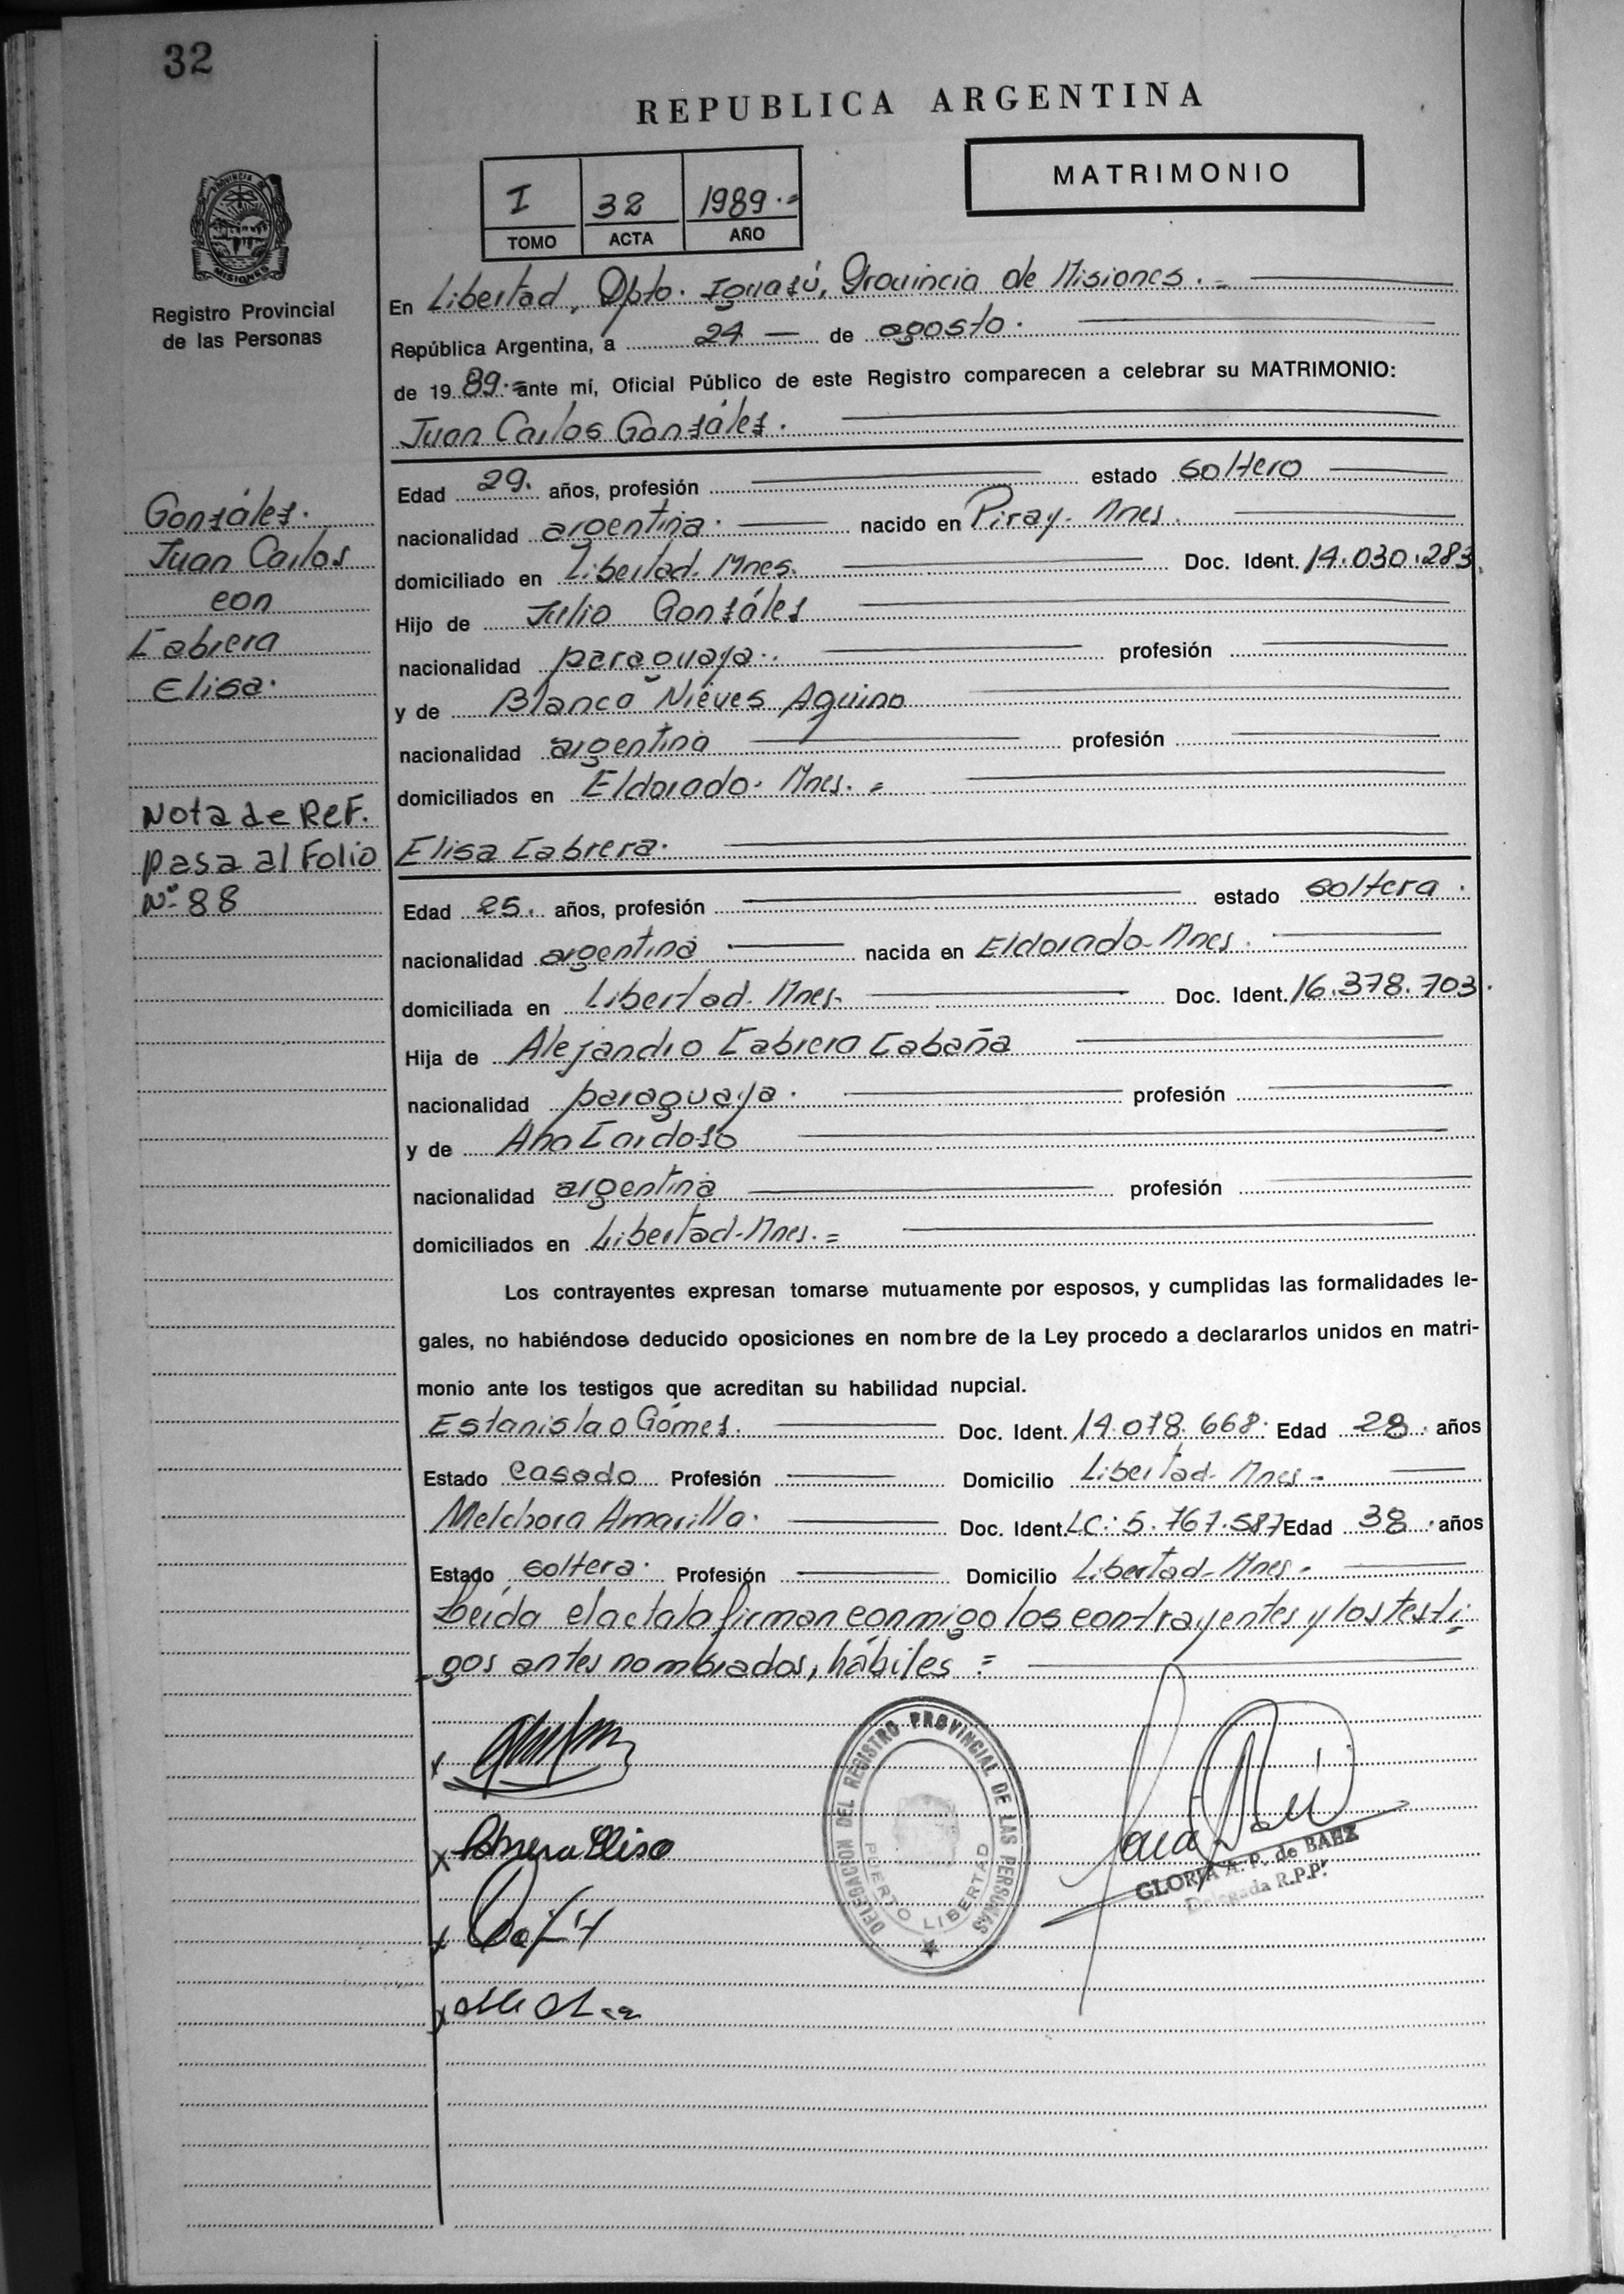 32
REPUBLICA ARGENTINA
MATRIMONIO
I 32 1989.=
TOMO ACTA AÑO
PROVINCIA DE MISIONES
Registro Provincial
de las Personas
En Libertad, Dpto. Iguazú, Provincia de Misiones.=
República Argentina, a 24 de agosto.
de 1989.= ante mí, Oficial Público de este Registro comparecen a celebrar su MATRIMONIO:
Juan Carlos Gonzáles.
Edad 29. años, profesión estado soltero
nacionalidad argentina. nacido en Piray- Mnes.
domiciliado en Libertad. Mnes. Doc. Ident. 14.030.283.
Hijo de Julio Gonzáles
nacionalidad paraguaya. profesión
y de Blanca Nieves Aquino
nacionalidad argentina profesión
domiciliados en Eldorado. Mnes.=
Elisa Cabrera.
Edad 25. años, profesión estado soltera.
nacionalidad argentina nacida en Eldorado-Mnes.
domiciliada en Libertad. Mnes. Doc. Ident. 16.378.703.
Hija de Alejandro Cabrera Cabaña
nacionalidad paraguaya. profesión
y de Ana Cardozo
nacionalidad argentina profesión
domiciliados en Libertad-Mnes.=
Los contrayentes expresan tomarse mutuamente por esposos, y cumplidas las formalidades le-
gales, no habiéndose deducido oposiciones en nombre de la Ley procedo a declararlos unidos en matri-
monio ante los testigos que acreditan su habilidad nupcial.
Estanislao Gómes. Doc. Ident. 14.078.668. Edad 28. años
Estado casado Profesión Domicilio Libertad-Mnes-
Melchora Amarilla. Doc. Ident. LC: 5.767.587 Edad 38. años
Estado soltera. Profesión Domicilio Libertad-Mnes-
Leída el acta la firman conmigo los contrayentes y los testi=
-gos antes nombrados, hábiles =
Gonzáles.
Juan Carlos
con
Cabrera
Elisa.
Nota de Ref.
pasa al Folio
Nº 88
x
x Cabrera Elisa
x
x
DELEGACION DEL REGISTRO PROVINCIAL DE LAS PERSONAS
PUERTO LIBERTAD
GLORIA A. P. de BAEZ
Delegada R.P.P.